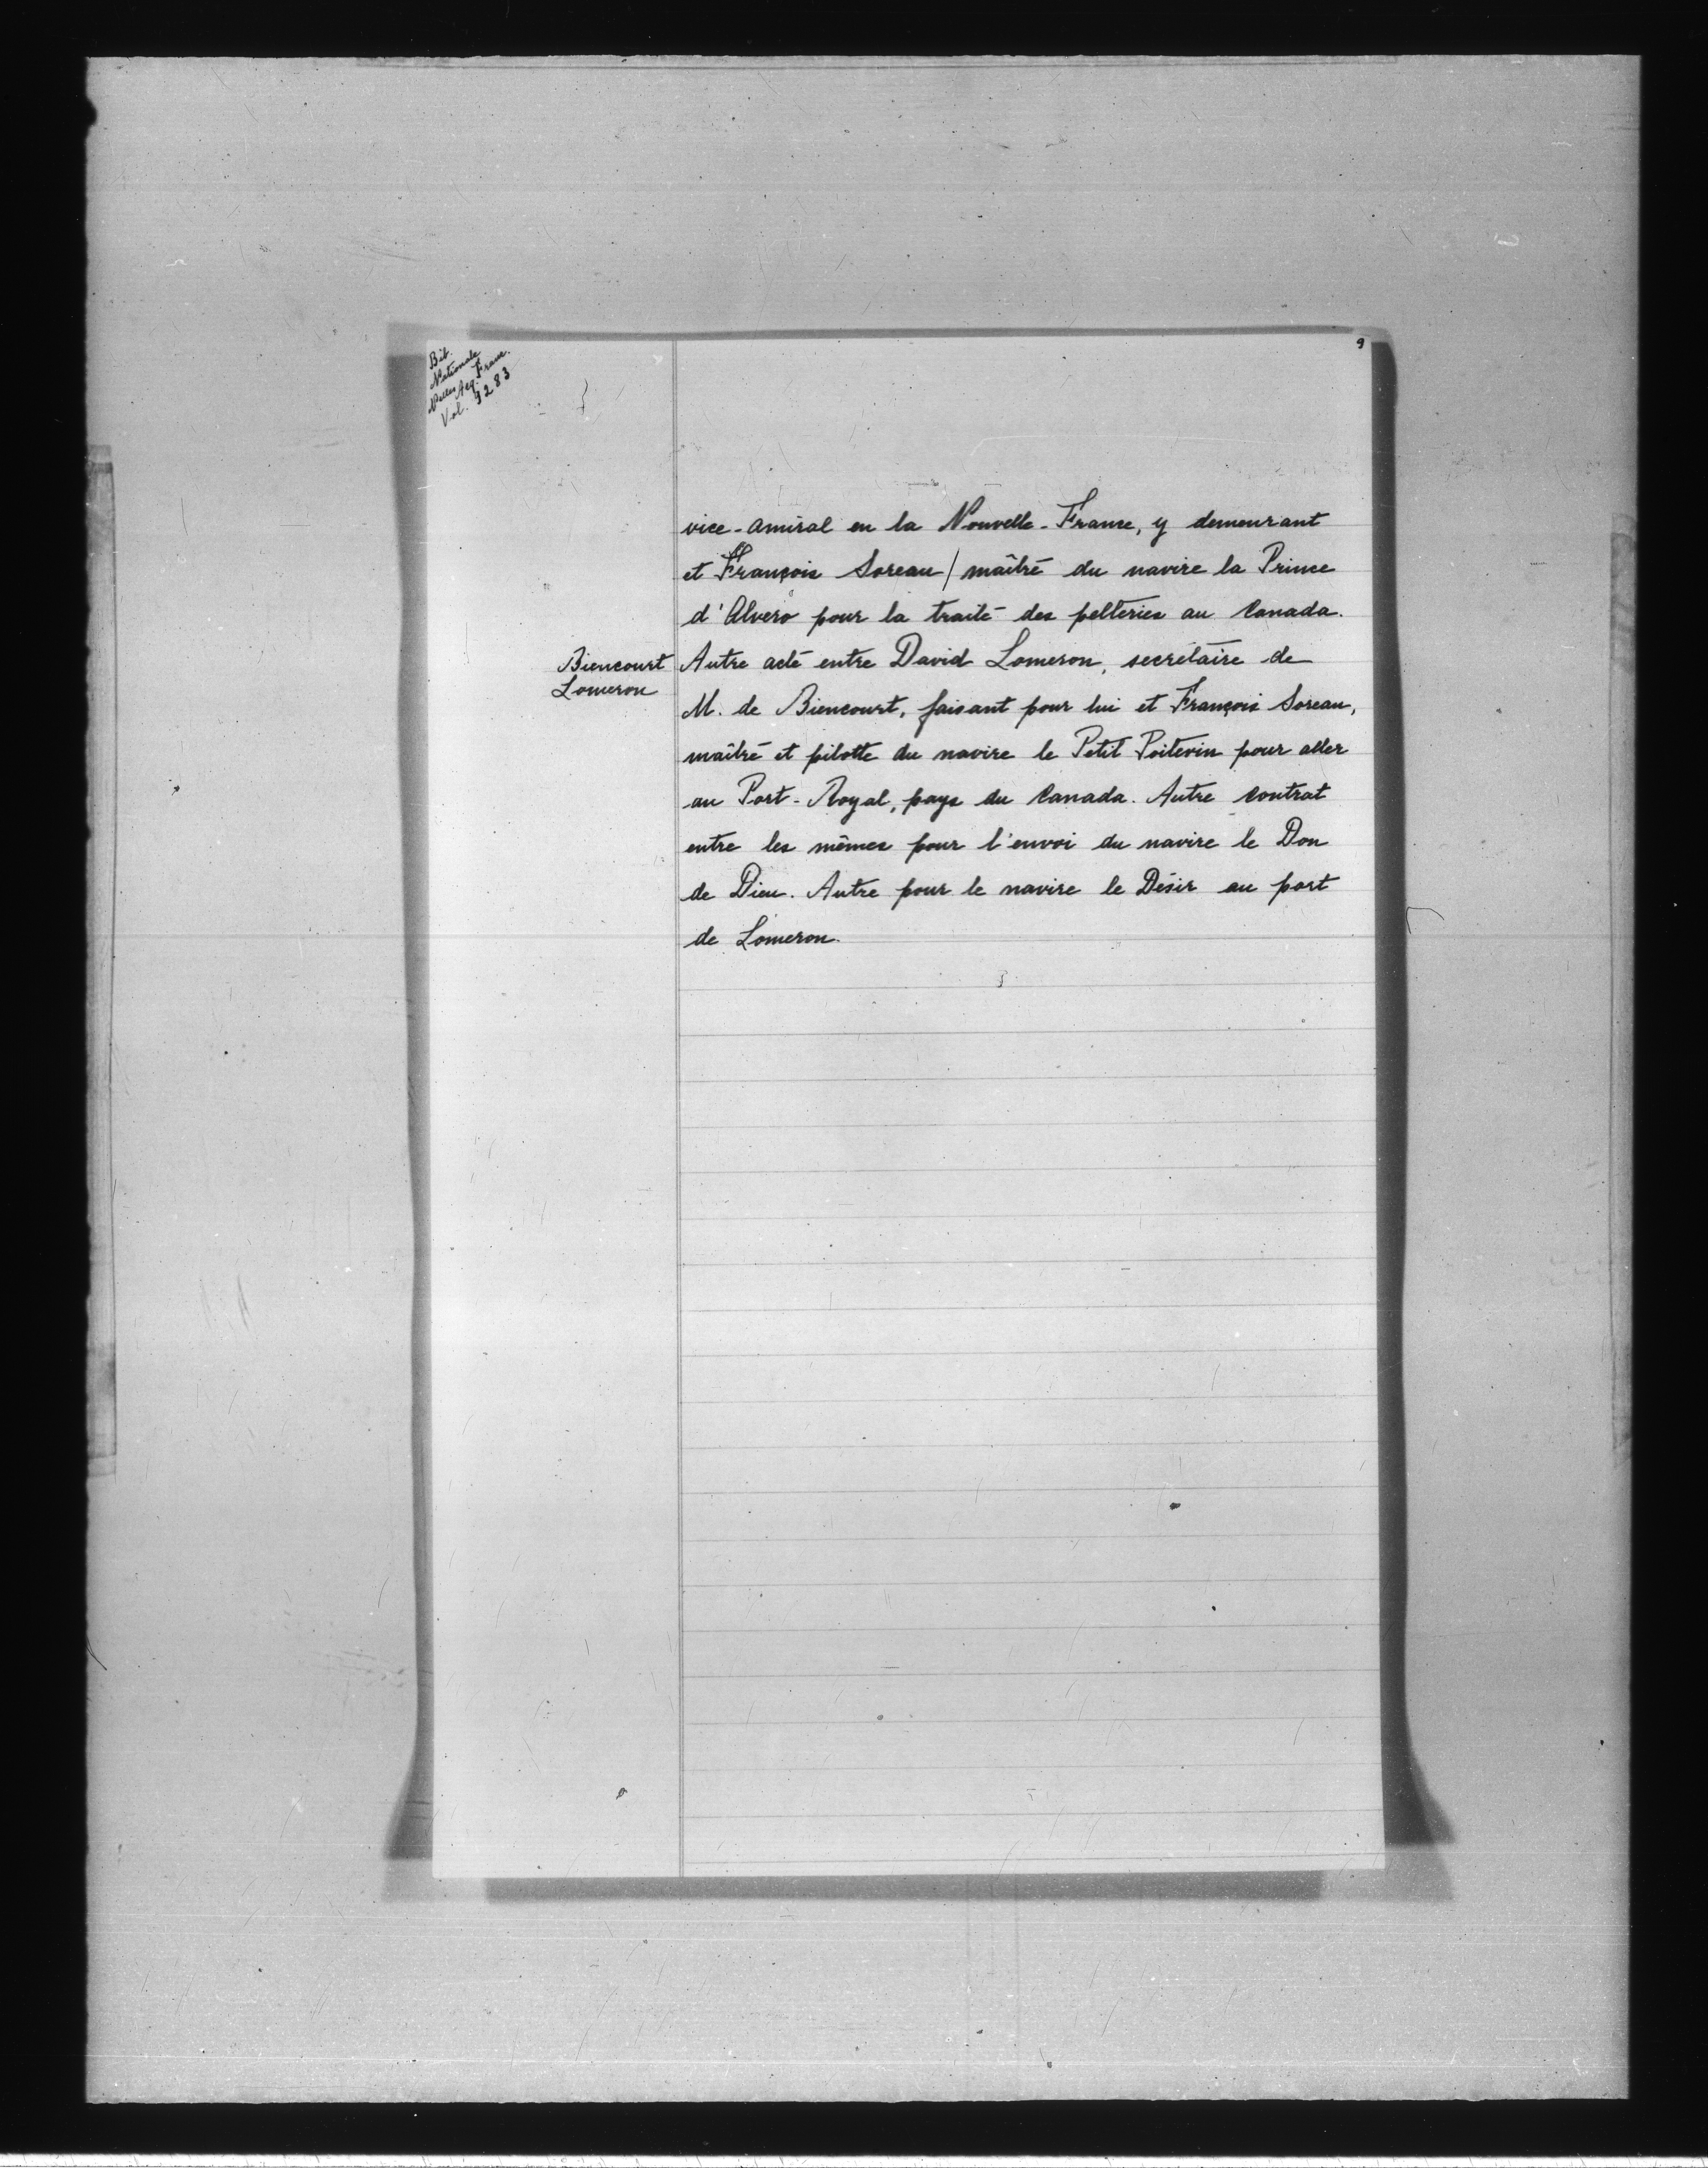 9
Bib.
Nationale
Nelles Acq. Franc.
Vol. 9283
vice-amiral en la Nouvelle-France, y demeurant
et François Soreau / maître du navire la Prince
d'Alvero pour la traite des pelteries au Canada.
Biencourt
Lomeron
Autre acte entre David Lomeron, secrétaire de
M. de Biencourt, faisant pour lui et François Soreau,
maître et pilotte du navire le Petit Poitevin pour aller
au Port-Royal, pays du Canada. Autre contrat
entre les mêmes pour l'envoi du navire le Don
de Dieu. Autre pour le navire le Désir au port
de Lomeron.